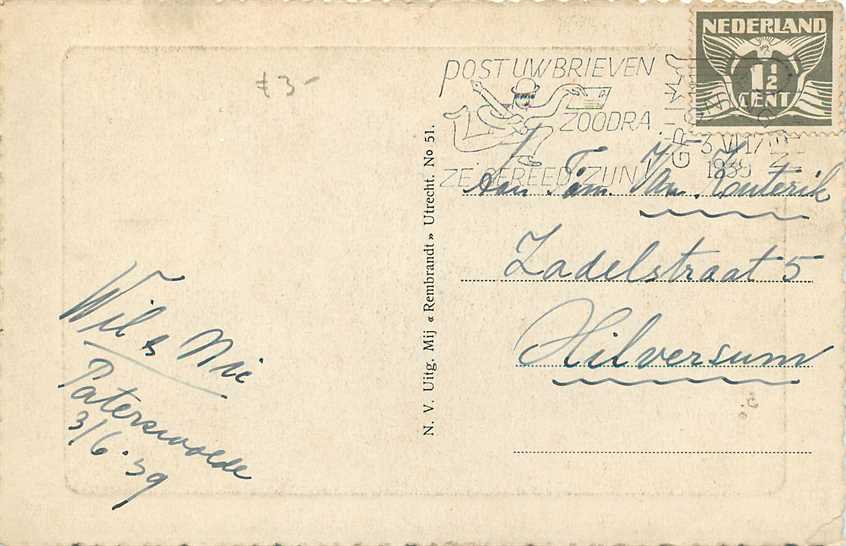 € 3-
NEDERLAND
1½
CENT
POST UW BRIEVEN
ZOODRA
ZE GEREED ZIJN
GRONINGEN
3 VI 17
1939
Aan Fam. Van
Zadelstraat 5
Hilversum
N. V. Uitg. Mij « Rembrandt » Utrecht. No 51.
Wil & Nic
Paterswolde
3/6.'39